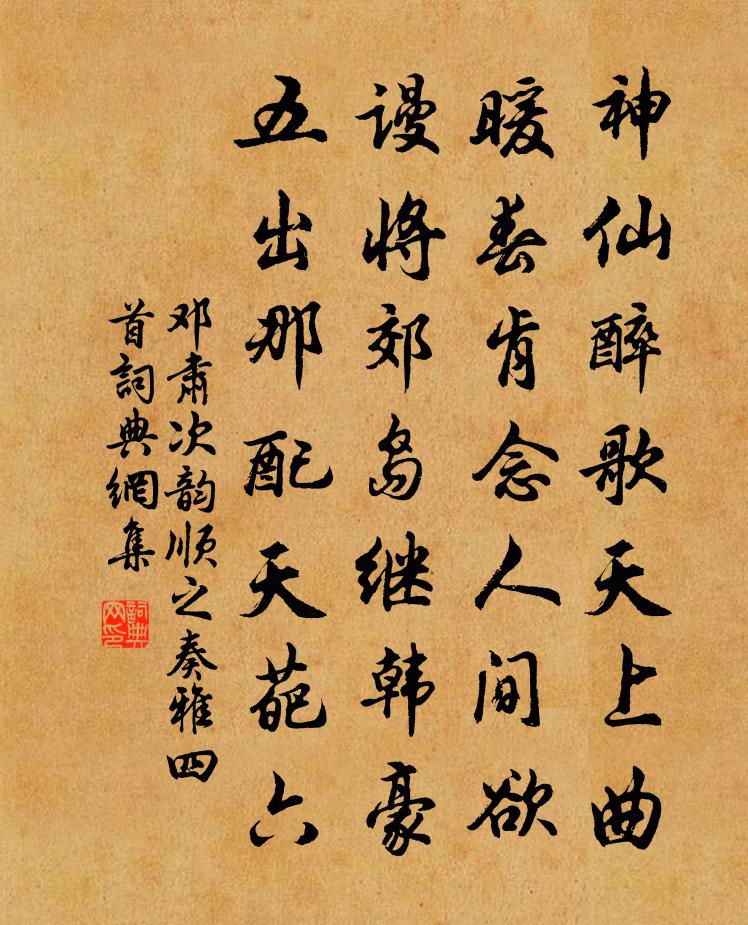 神仙醉歌天上曲
暖春肯念人间欲
谩将郊岛继韩豪
五出那配天葩六
邓肃次韵顺之奏雅四
首詞典網集
詞典网印